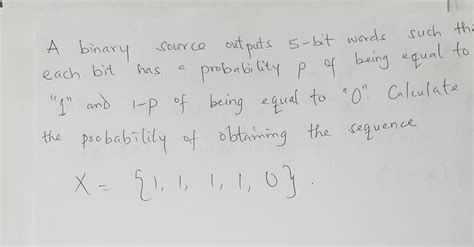 A binary source outputs 5-bit words such
each bit has a probability p of being equal to
"1" and 1-p of being equal to "0". Calculate
the probability of obtaining the sequence
X = {1, 1, 1, 1, 0}.